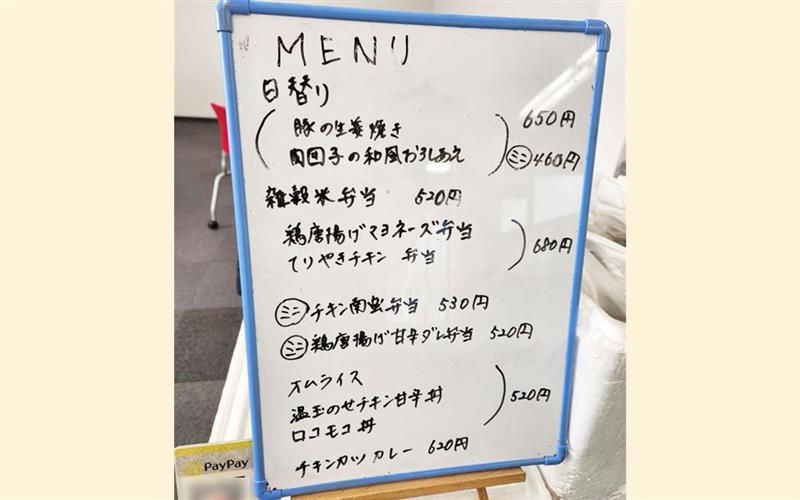 MENU
日替り
豚の生姜焼き 650円
肉団子の和風おろしあえ ミニ 460円
雑穀米弁当 520円
鶏唐揚げマヨネーズ弁当
てりやきチキン 弁当 680円
ミニ チキン南蛮弁当 530円
ミニ 鶏唐揚げ甘辛ダレ弁当 520円
オムライス
温玉のせチキン甘辛丼 520円
ロコモコ丼
チキンカツカレー 620円
PayPay